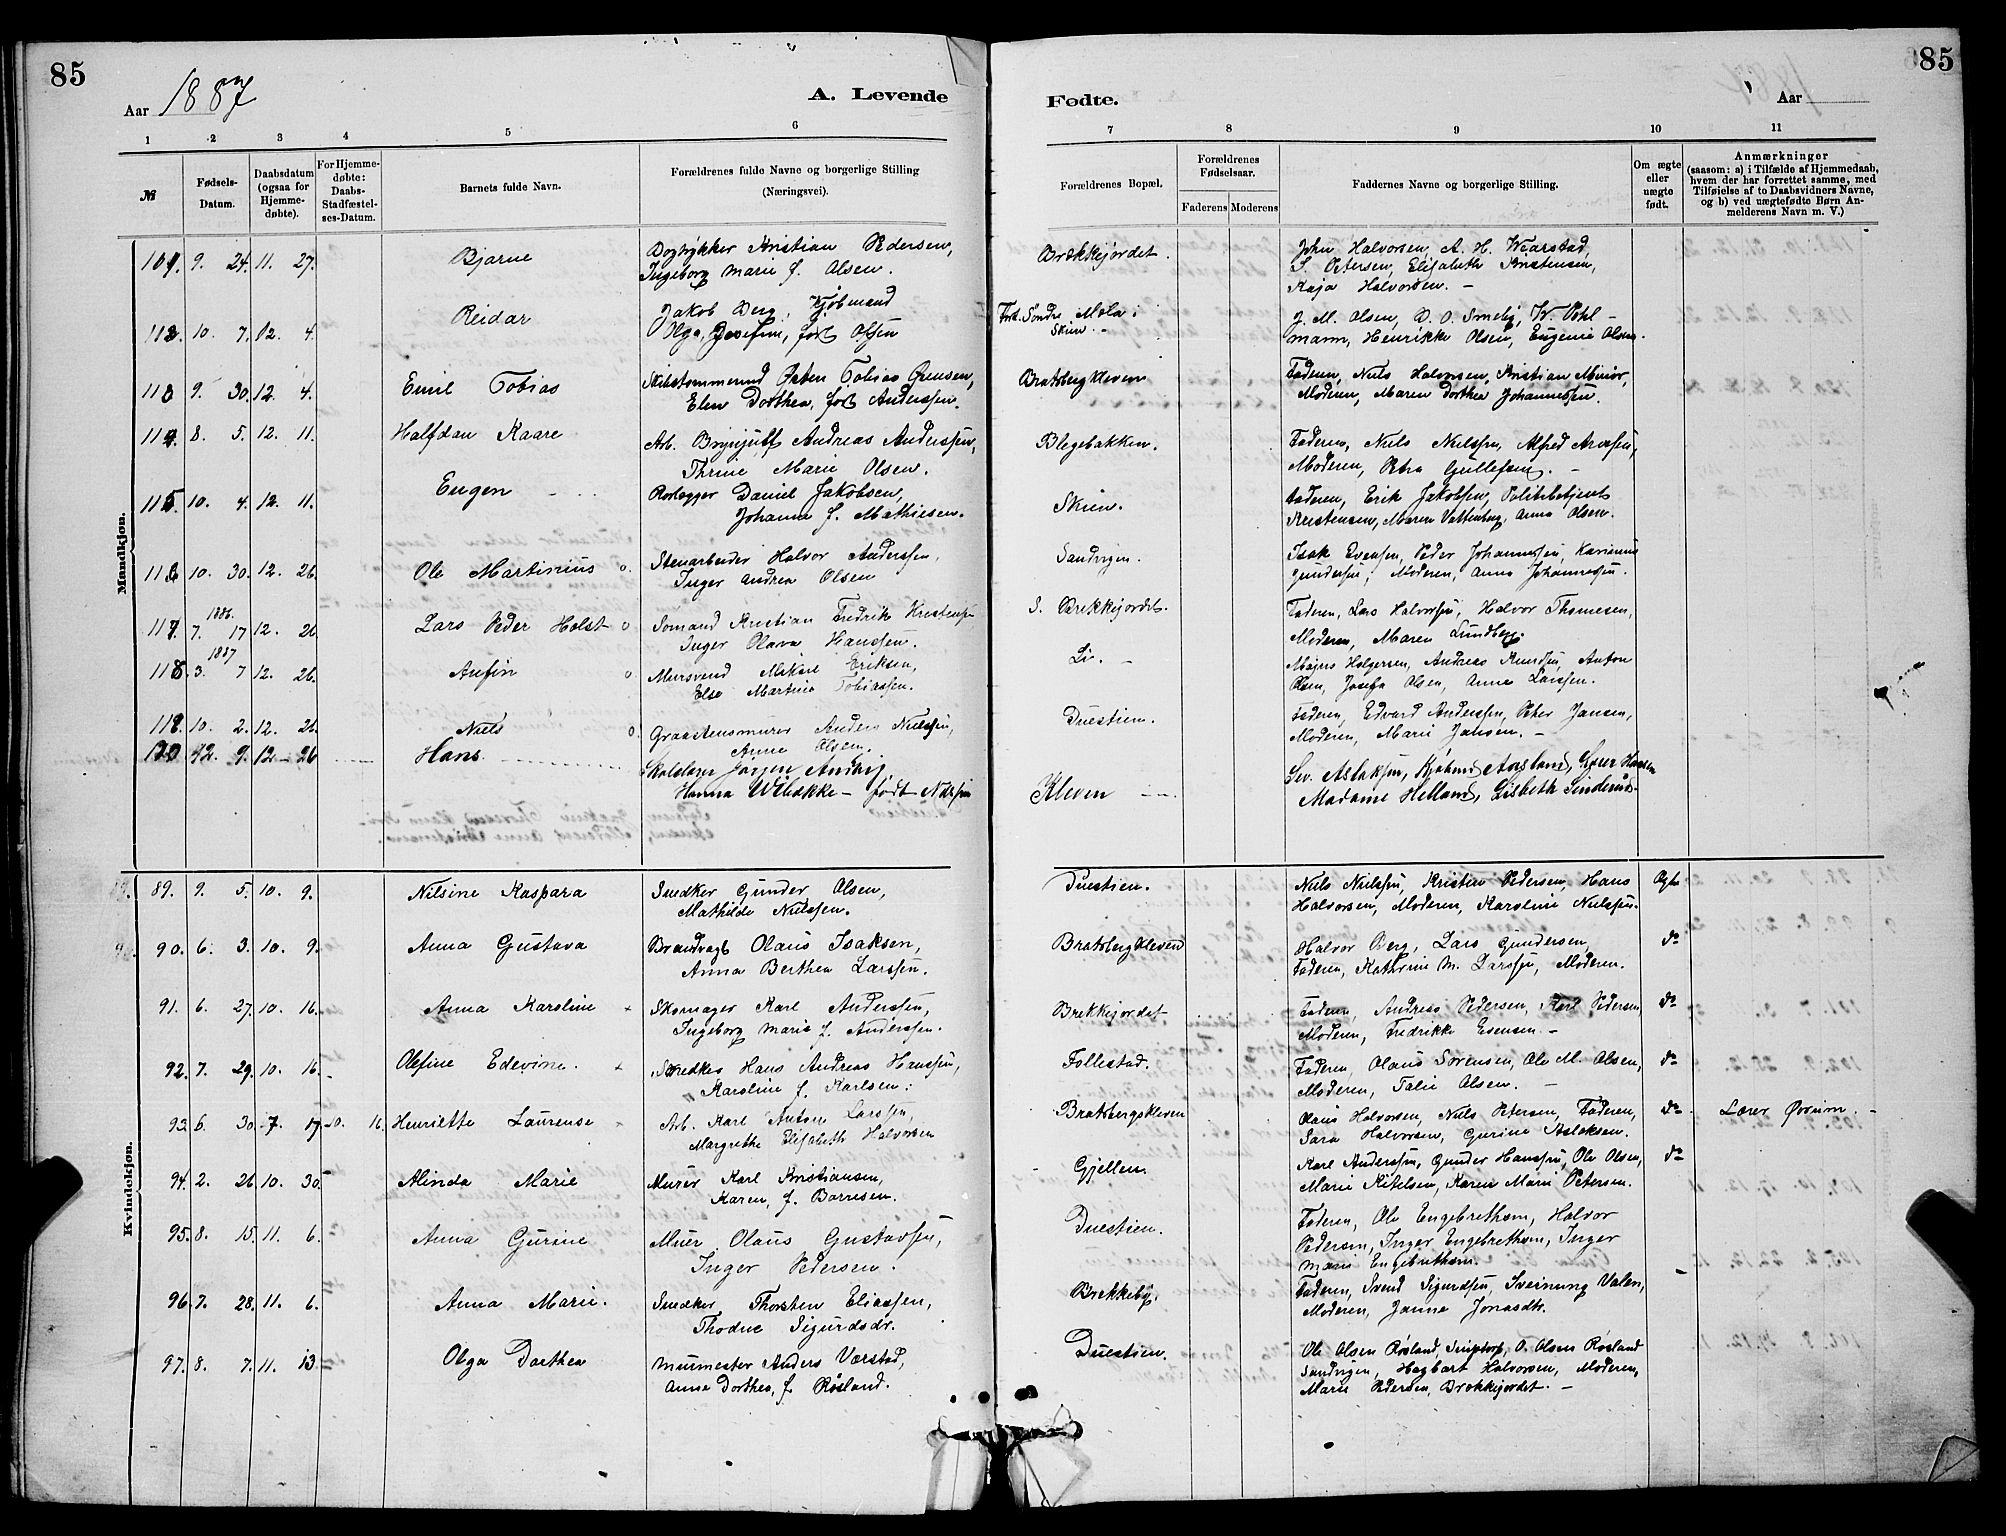 85
Aar 1887
A. Levende
Fødte.
Aar
85
1 2 3 4 5 6 7 8 9 10 11
№
Fødsels-Datum.
Daabsdatum (ogsaa for Hjemmedøbte).
For Hjemmedøbte: Daabs-Stadfæstelses-Datum.
Barnets fulde Navn.
Forældrenes fulde Navne og borgerlige Stilling (Næringsvei).
Forældrenes Bopæl.
Forældrenes Fødselsaar.
Faderens Moderens
Faddernes Navne og borgerlige Stilling.
Om ægte eller uægte født.
Anmærkninger
(saasom: a) i Tilfælde af Hjemmedaab, hvem der har forrettet samme, med Tilføielse af to Daabsvidners Navne, og b) ved uægtefødte Børn Anmelderens Navn m. V.)
Mandkjøn.
9. 24. 11. 27. Bjarne
Bogtrykker Kristian Pedersen,
Ingeborg Marie f. Olsen.
Brækkejordet.
John Halvorsen, A. H. Wærstad,
S. Petersen, Elisabeth Kristensen,
Kaja Halvorsen. –
10. 7. 12. 4. Reidar
Jakob Berg, Kjøbmand
Olga Josefine, født Olsen
Søndre Mæla i
Skien. –
J. M. Olsen, O. Smeby, W. Pohl-
mann, Henrikke Olsen, Eugenie Olsen.
113 9. 30. 12. 4. Emil Tobias
Skibstømmermand Tobias
Elen Dorthea, født Anderssen.
Bratsbergkleven
Faderen, Niels Halvorsen, Kristian
Moderen, Maren Dorthea Johannessen.
114. 8. 5. 12. 11. Halfdan Kaare
Arb. Brynjulf Andreas Anderssen,
Thrine Marie Olsen.
Blegebakken.
Faderen, Niels Nielssen, Alfred
Moderen, Petra Gullefsen. –
115. 10. 4. 12. 11. Eugen
Rørlægger Daniel Jakobsen,
Johanna f. Mathiesen.
Skien.
Faderen, Erik Jakobsen, Politibetjent
Kristensen, Maren Valtenberg, Anna Olsen.
116. 10. 30. 12. 26. Ole Martinius
Stenarbeider Halvor Anderssen,
Inger Andrea Olsen
Sandvigen.
Isak Evensen, Peder Johannessen, Karinius
Gunderssen, Moderen, Anna Johannessen.
1886.
117. 7. 17 12. 26 Lars Peder Holst
Sømand Kristian Fredrik Kristensen
Inger Olava Hanssen.
S. Brekkejordet.
Faderen, Lars Halvorsen, Halvor Thomesen,
Moderen, Maren Lundberg.
1887
118. 3. 7 12. 26. Anfin
Mursvend Mikael Eriksen,
Else Martine Tobiassen.
Li. –
Majus Holgersen, Andreas Knudsen, Anton
Olsen, Josefa Olsen, Anna Larssen.
10. 2. 12. 26. Niels
Graastensmurer Anders Nielssen,
Anne Olsen.
Duestien.
Faderen, Edvard Anderssen, Peter Jansen,
Moderen, Marie Jansen. –
120 12. 9. 12 – 26 Hans
Skolelærer Jørgen
Hanna – født
Kleven
Madame Helland, Lisbeth
Kvindekjøn.
89. 9. 5. 10. 9. Nilsine Kaspara
Snedker Gunder Olsen,
Mathilde Nielssen.
Duestien.
Niels Nielssen, Kristen Pedersen, Hans
Halvorsen, Moderen, Karoline Nielssen.
Ægte
90. 6. 3. 10. 9. Anna Gustava
Brandvagt Olaus Isaksen,
Anna Berthea Larssen.
Bratsbergkleven
Halvor Berg, Lars Gundersen,
Faderen, Kathrine M. Larssen, Moderen.
do
91. 6. 27. 10. 16. Anna Karoline
Skomager Karl Anderssen,
Ingeborg Marie f. Anderssen.
Brekkejordet
Faderen, Andreas Pedersen, Karl Pedersen
Moderen, Fredrikke Evensen. –
do
92. 7. 29. 10. 16. Olefine Edevine.
Snedker Hans Andreas Hanssen,
Karoline f. Karlsen.
Follestad.
Faderen, Olaus Sørensen, Ole M. Olsen,
Moderen, Talie Olsen. –
do
93. 6. 30. 7 17 10. 16. Henriette Laurense
Arb. Karl Anton Larssen,
Margrethe Elisabeth Halvorsen
Bratsbergskleven
Olaus Halvorsen, Niels Petersen, Faderen,
Sara Halvorsen, Gurine Aslaksen.
do
Lærer Ørum. –
94. 2. 26. 10. 30. Alinda Marie
Murer Karl Kristiansen,
Karen, f. Borresen.
Gjellen.
Karl Anderssen, Gunder Hanssen, Ole Olsen,
Marie Kitelsen, Karen Marie Petersen.
do
95. 8. 15. 11. 6. Anna Gurine
Murer Olaus Gustavsen,
Inger Pedersen.
Duestien.
Faderen, Ole Engebrethsen, Halvor
Pedersen, Inger Engebrethsen, Inger
Marie Engebrethsen.
96. 7. 28. 11. 6. Anna Marie.
Snedker Thorsten Eliassen,
Thodne Sigurdsdr.
Brekkeby,
Faderen, Svend Sigurdsen, Sveinung Valen,
Moderen, Janna Jonasdtr.
97. 8. 7. 11. 13. Olga Dorthea
Murmester Anders Værstad,
Anna Dorthea, f. Røsland.
Duestien.
Ole Olsen Røsland, O. Olsen Røsland
Sandvigen, Hagbart Halvorsen, Moderen,
Marie Pedersen, Brekkejordet. –